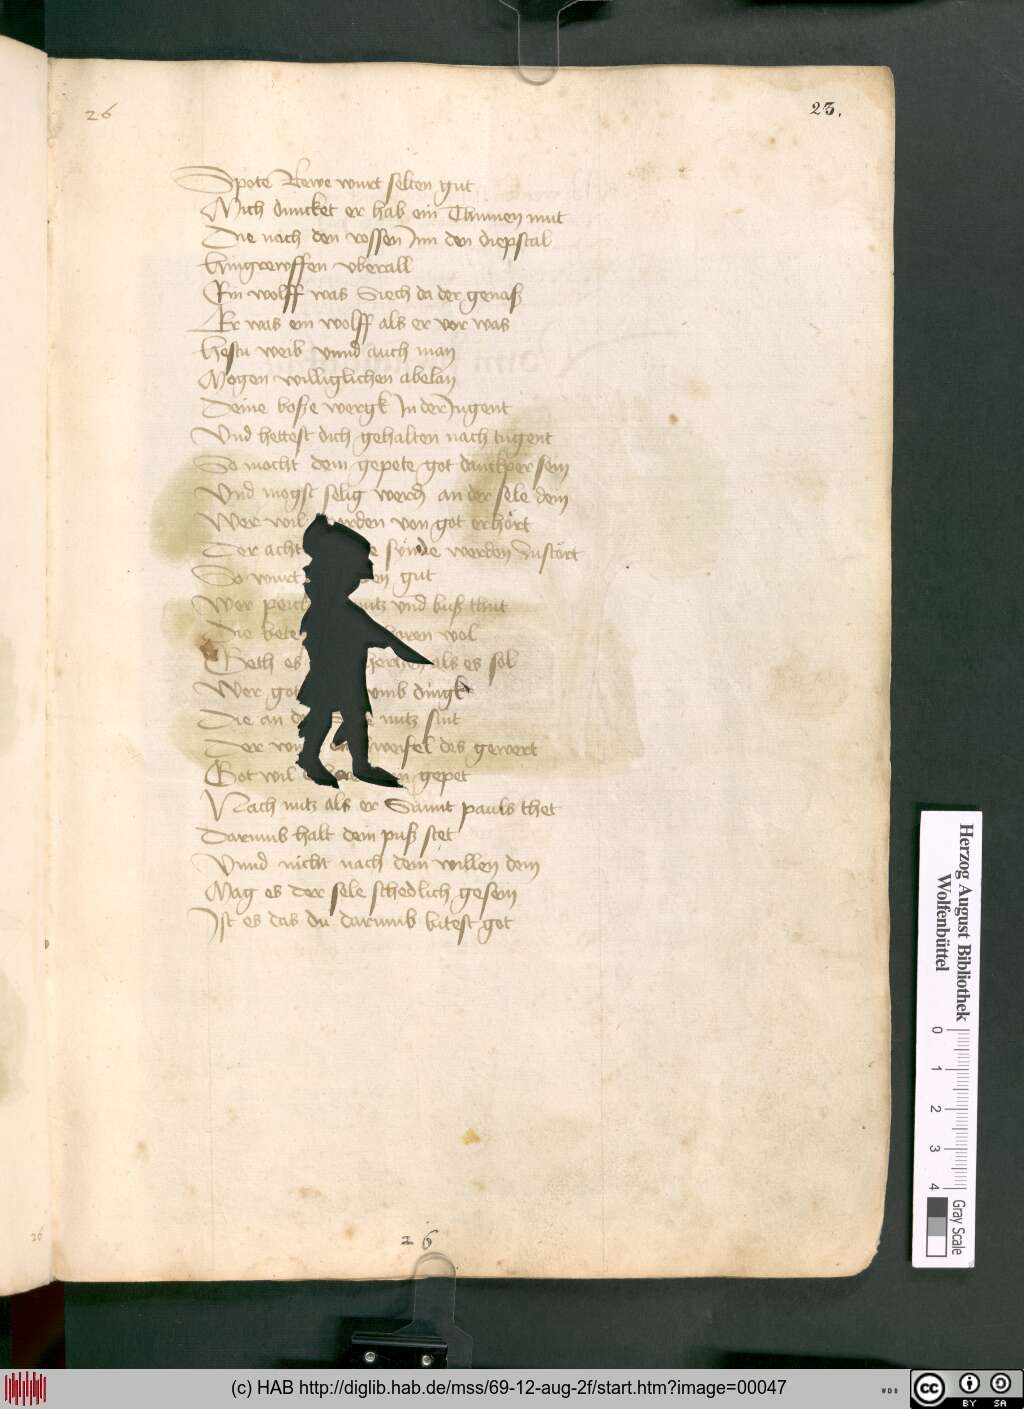 26
23.
Spote Rewe wurt selten gut
Mich duncket er hab ein Thumen mut
Die nach den rossen Inn den diepstal
Hingrewffen vberall
Ein wolff was Siech da der genaß
Er was ein wolff als er vor was
Hestu weib vnnd auch man
Mogen williglichen abelan
Deine boße wergk In der Jugent
Vnd hettest dich gehalten nach tugent
So mocht dein gepete got danckper sein
Vnd mogst selig werden an der sele dein
Wer wil werden von got erhört
Der acht synde werden zustört
So wurt gut
Wer peicht nutz vnd buß thut
Die bete wol
Geth es hertzen als es sol
Wer got vmb dingk
Die an der nutz sint
Der wurt zweifel des gewert
Got wil gepet
Nach nutz als er Sannt pauls thet
Darumb halt dein puß stet
Vnnd nicht nach dein willen dein
Mag es der sele schedlich gesein
Ist es das du darumb bitest got
26
26
Herzog August Bibliothek
Wolfenbüttel
0 1 2 3 4
Gray Scale
(c) HAB http://diglib.hab.de/mss/69-12-aug-2f/start.htm?image=00047
WDB
cc BY SA